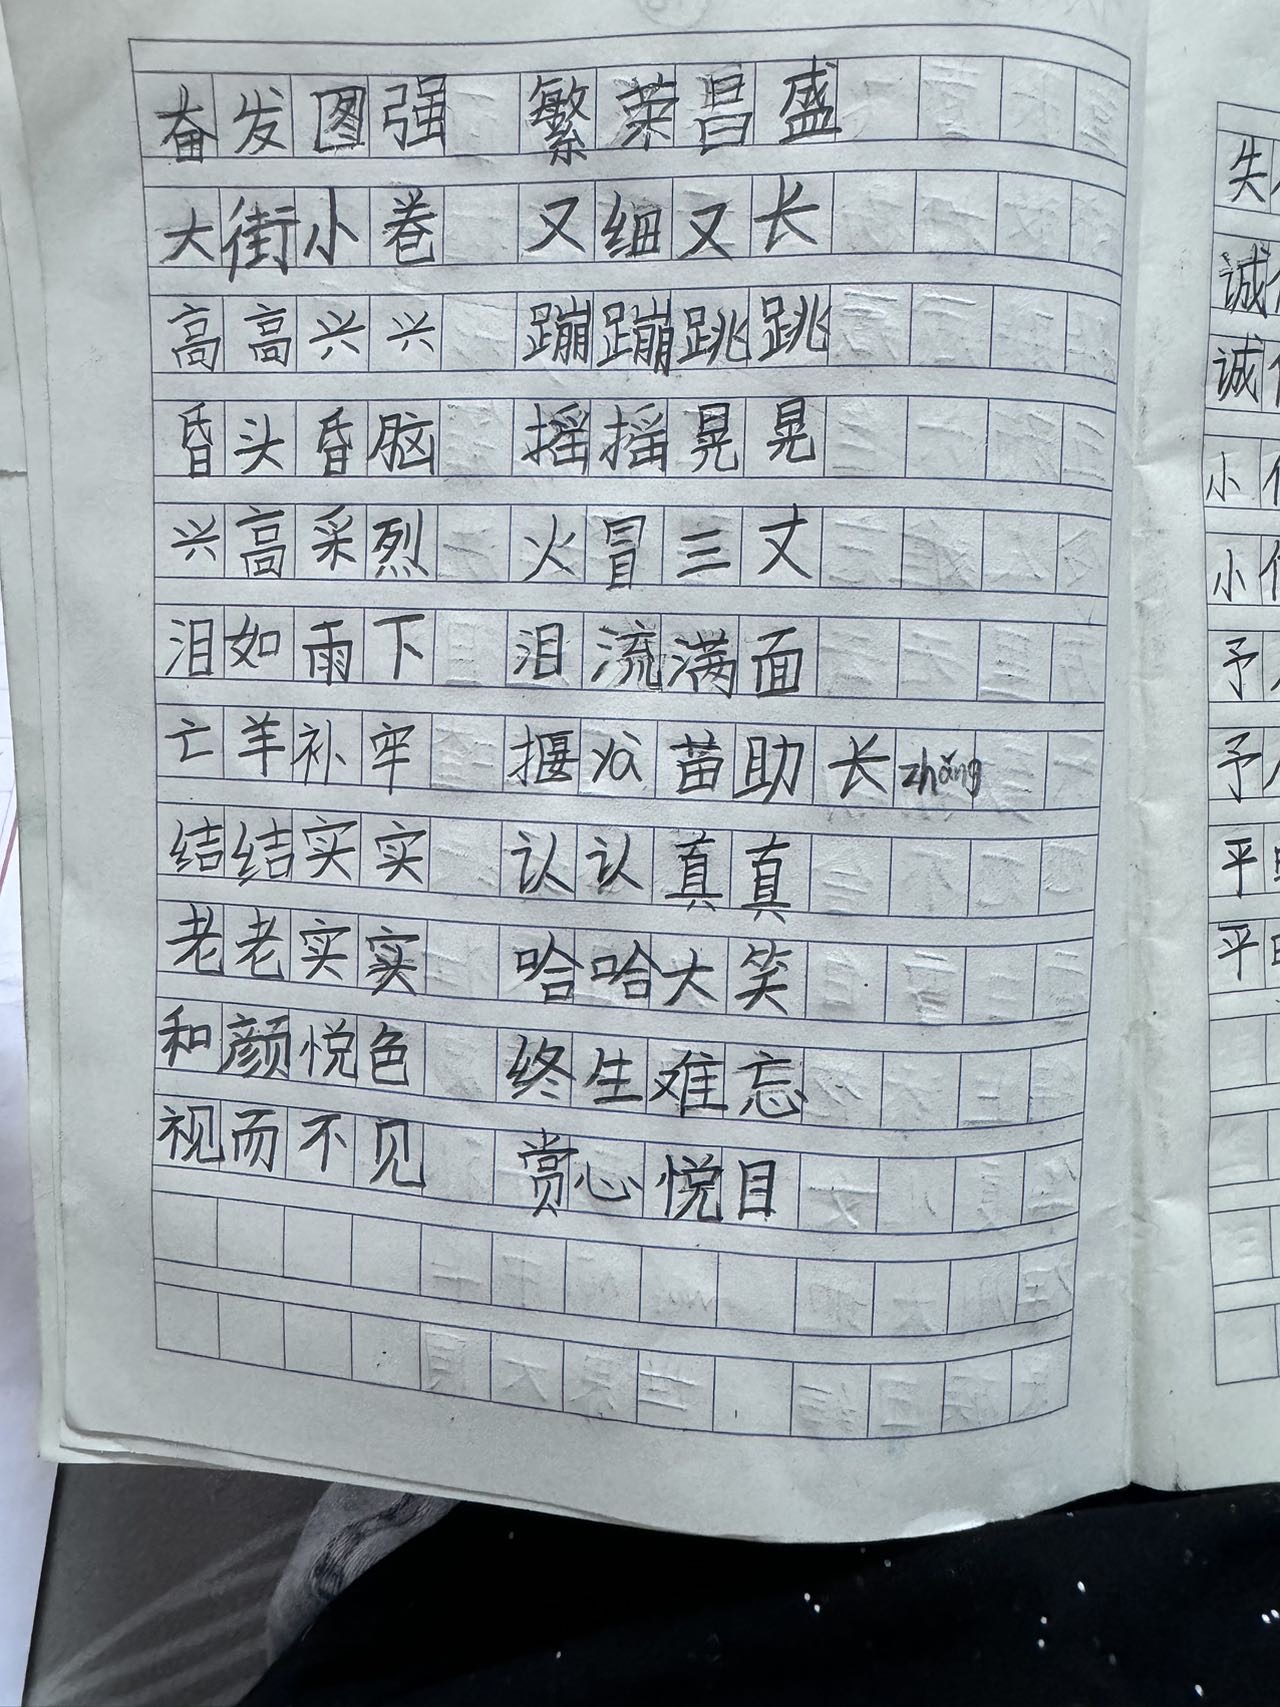 奋发图强 繁荣昌盛
大街小巷 又细又长
高高兴兴 蹦蹦跳跳
昏头昏脑 摇摇晃晃
兴高采烈 火冒三丈
泪如雨下 泪流满面
亡羊补牢 揠yà苗助长zhǎng
结结实实 认认真真
老老实实 哈哈大笑
和颜悦色 终生难忘
视而不见 赏心悦目
失
诚
诚
小
小
予
予
平
平